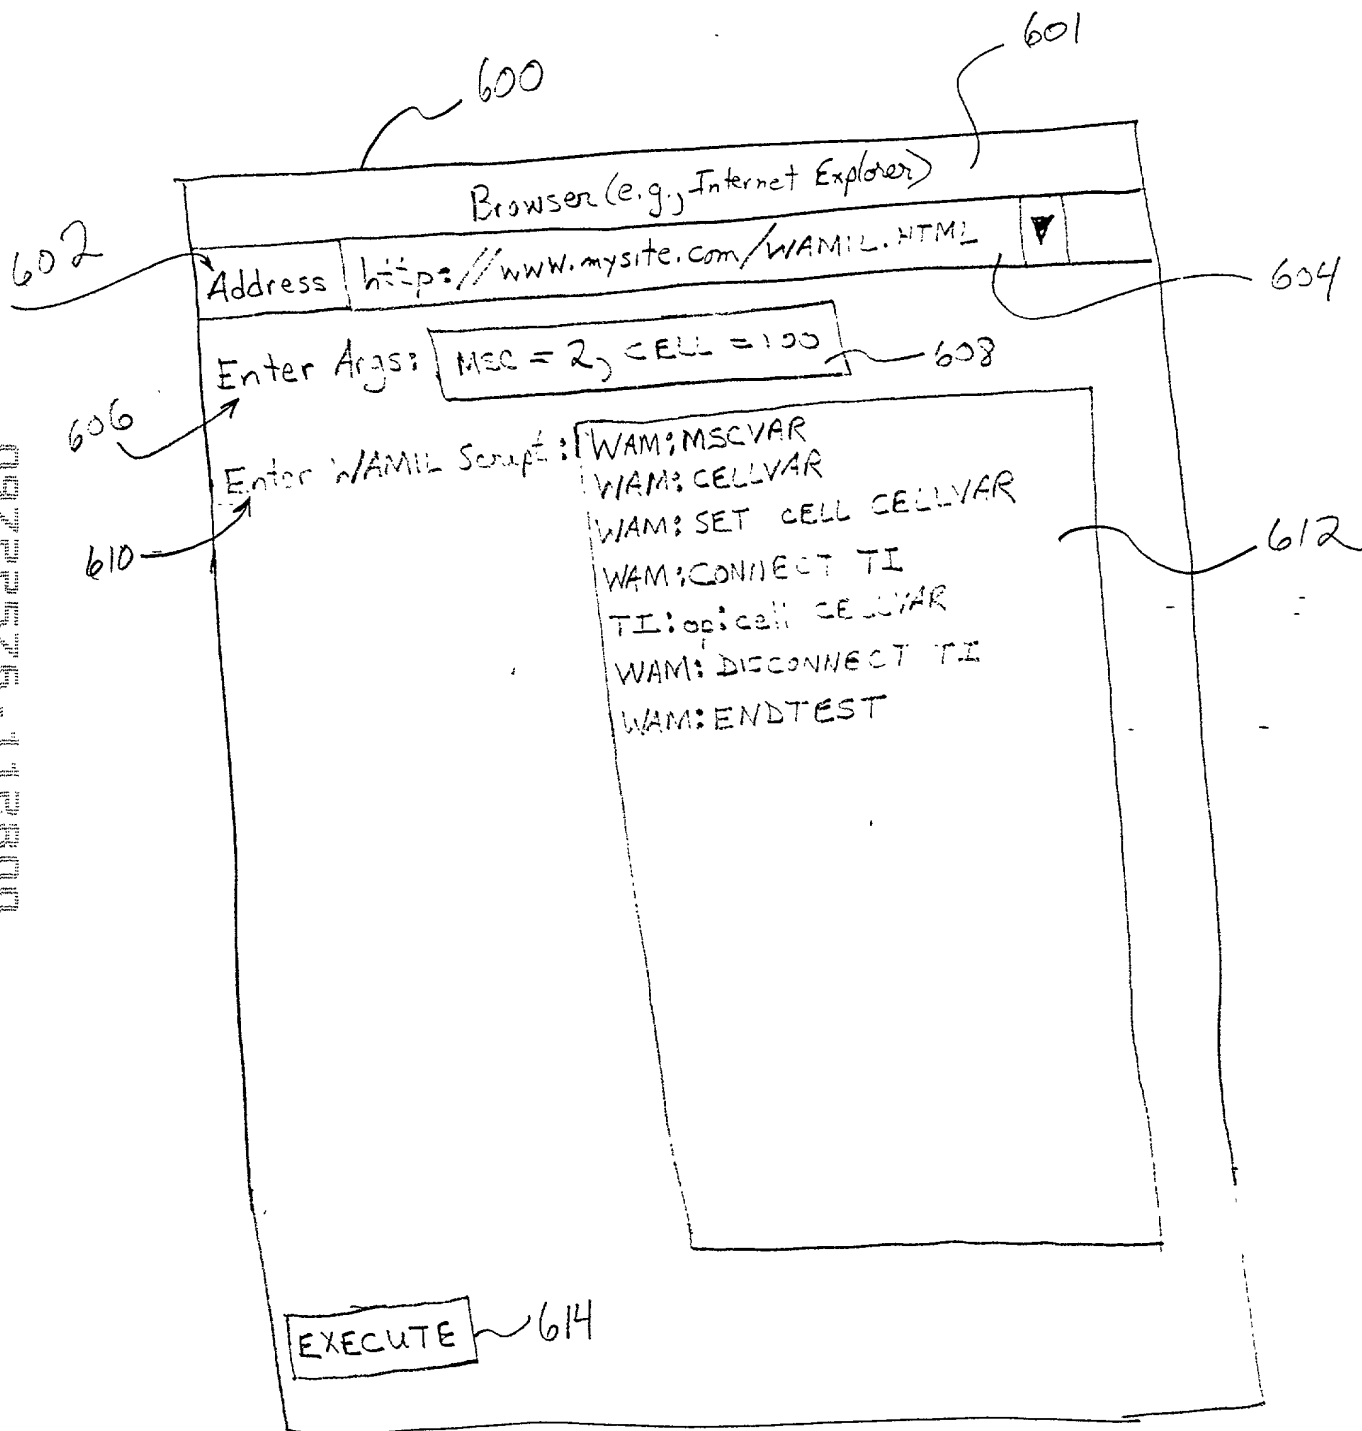 600
601
Browser (e.g., Internet Explorer)
602
Address http://www.mysite.com/WAMIL.HTML
604
Enter Args: MSC = 2, CELL = 100
608
606
Enter WAMIL Script:
WAM:MSCVAR
WAM:CELLVAR
WAM:SET CELL CELLVAR
WAM:CONNECT TI
TI:op:cell CELLVAR
WAM:DISCONNECT TI
WAM:ENDTEST
610
612
EXECUTE
614